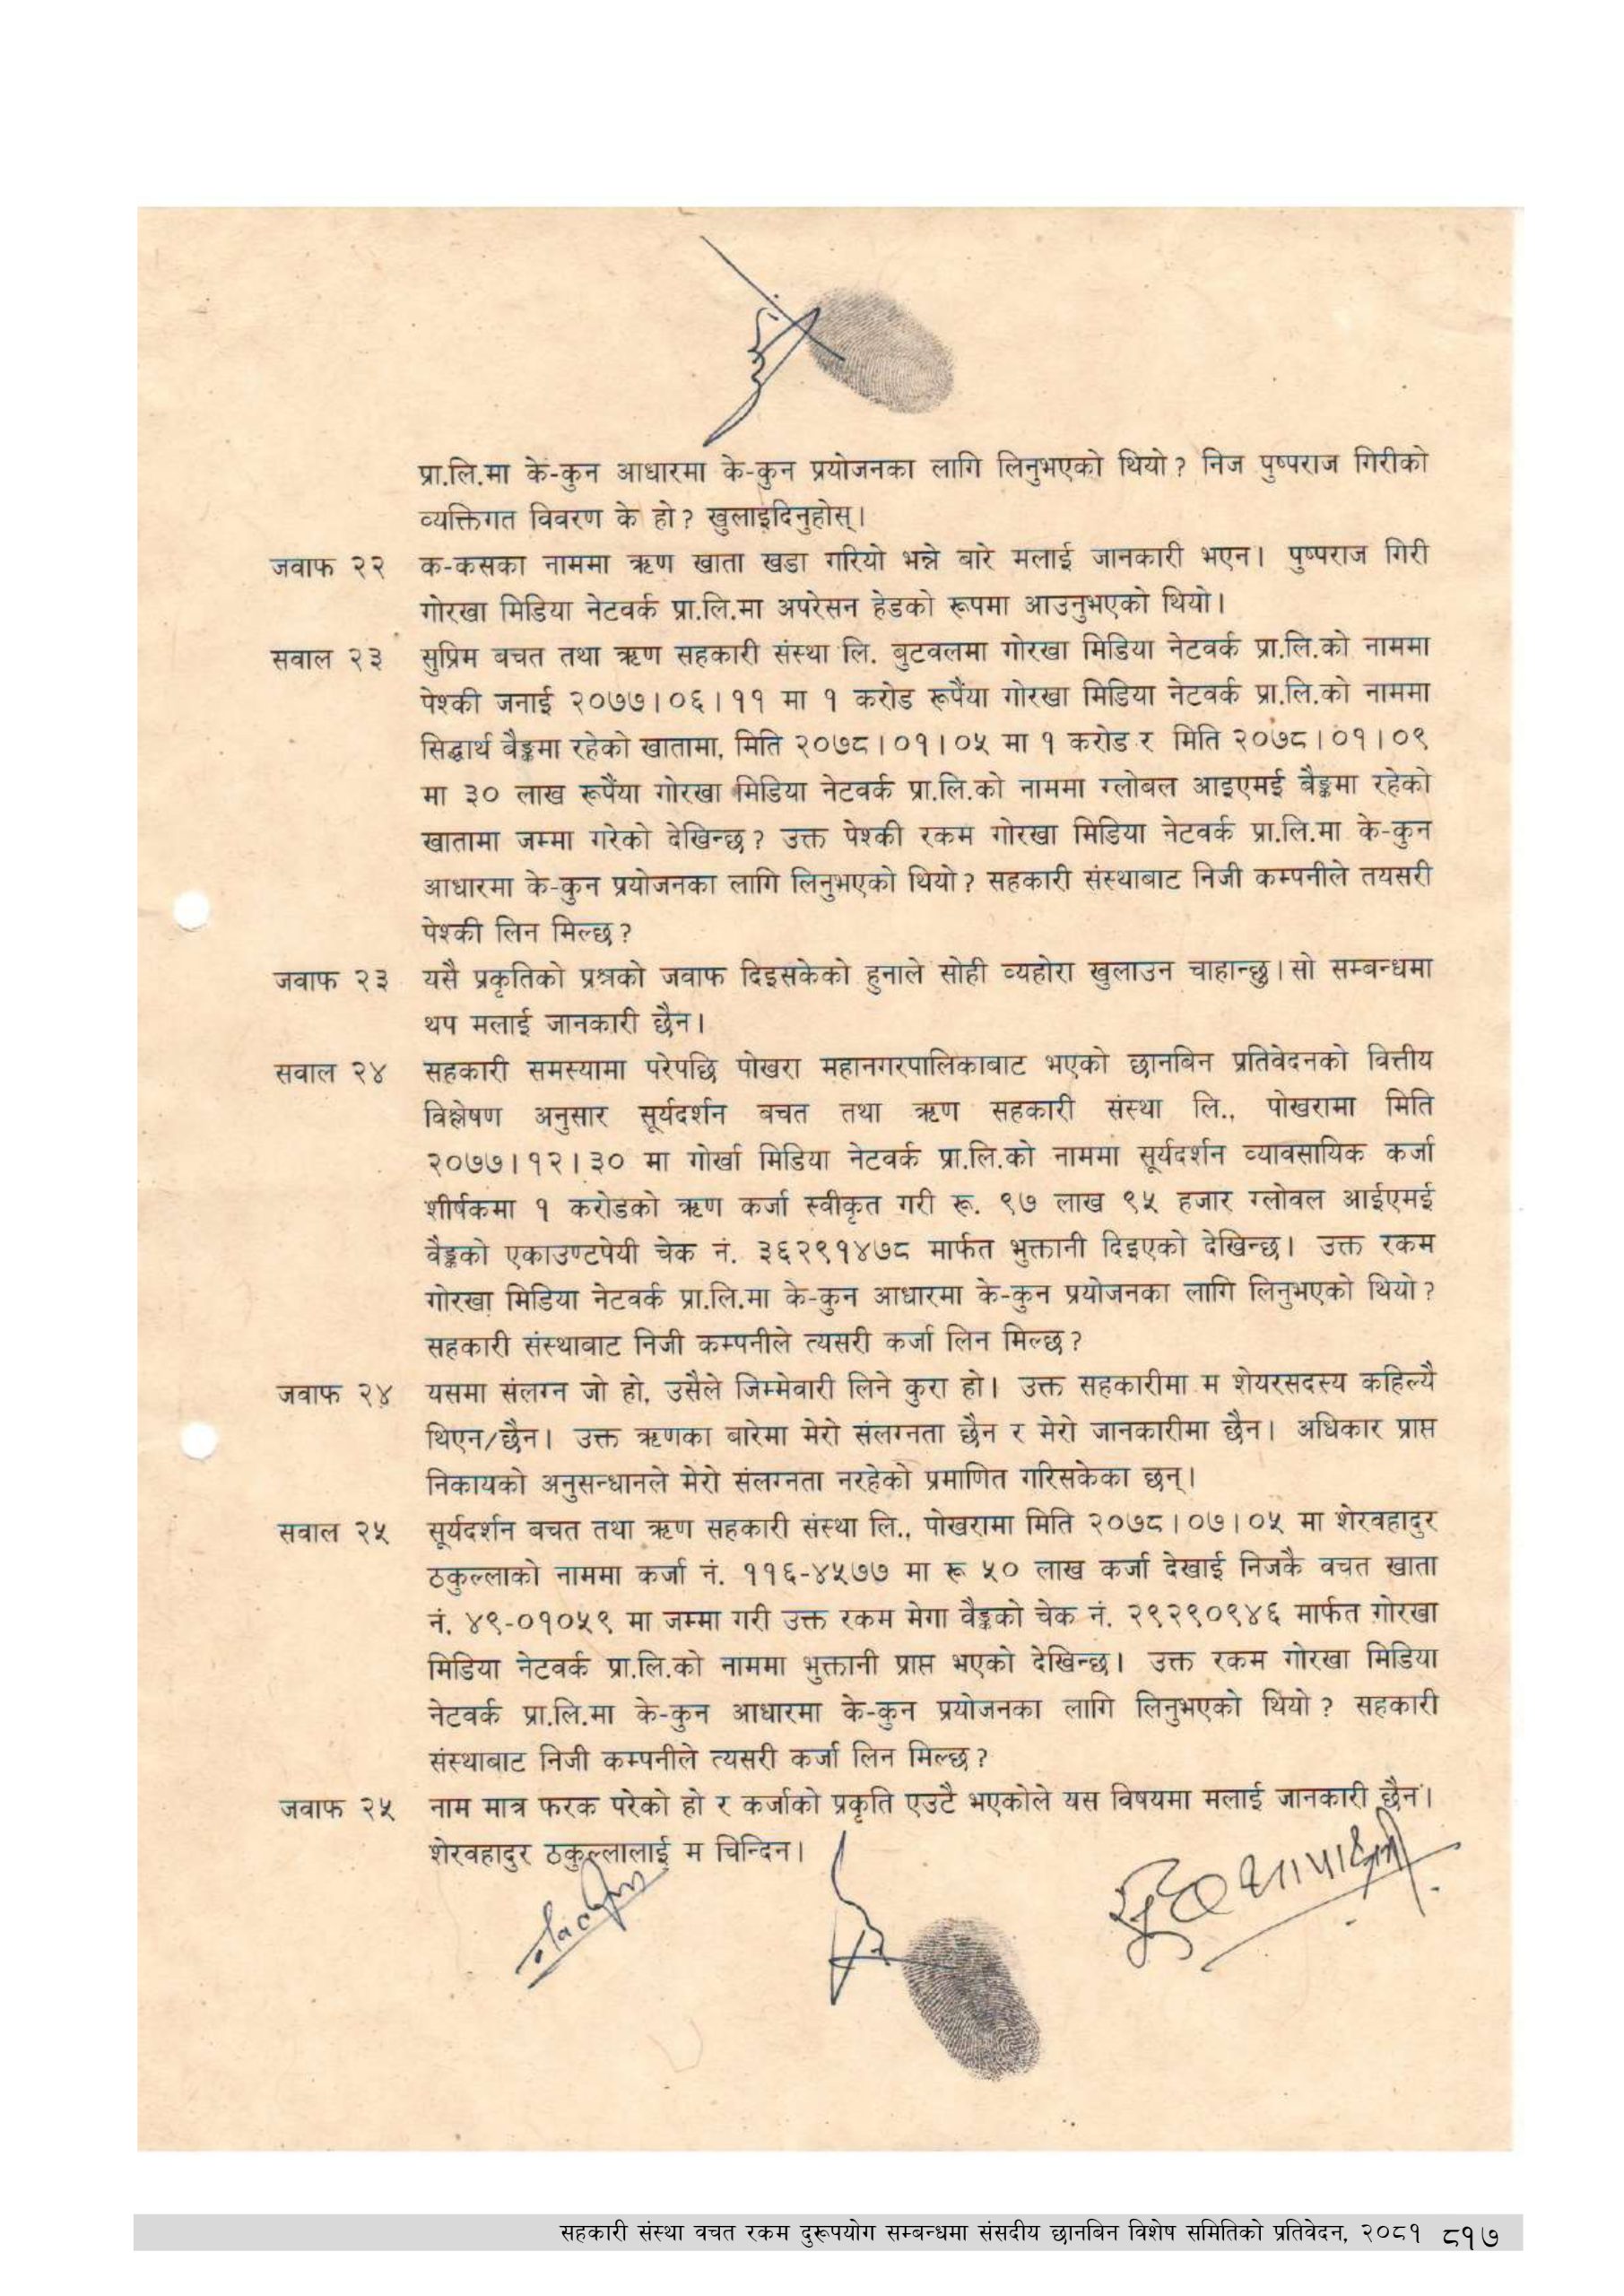 प्रा.लि.मा के-कुन आधारमा के-कुन प्रयोजनका लागि लिनुभएको थियो? निज पुष्पराज गिरीको
व्यक्तिगत विवरण के हो? खुलाइदिनुहोस्।
जवाफ २२ क-कसका नाममा ऋण खाता खडा गरियो भन्ने बारे मलाई जानकारी भएन। पुष्पराज गिरी
गोरखा मिडिया नेटवर्क प्रा.लि.मा अपरेसन हेडको रूपमा आउनुभएको थियो।
सवाल २३ सुप्रिम बचत तथा ऋण सहकारी संस्था लि. बुटवलमा गोरखा मिडिया नेटवर्क प्रा.लि.को नाममा
पेश्की जनाई २०७७।०६।११ मा १ करोड रूपैंया गोरखा मिडिया नेटवर्क प्रा.लि.को नाममा
सिद्धार्थ बैङ्कमा रहेको खातामा, मिति २०७८।०१।०५ मा १ करोड र मिति २०७८।०१।०९
मा ३० लाख रूपैंया गोरखा मिडिया नेटवर्क प्रा.लि.को नाममा ग्लोबल आइएमई बैङ्कमा रहेको
खातामा जम्मा गरेको देखिन्छ? उक्त पेश्की रकम गोरखा मिडिया नेटवर्क प्रा.लि.मा के-कुन
आधारमा के-कुन प्रयोजनका लागि लिनुभएको थियो? सहकारी संस्थाबाट निजी कम्पनीले तयसरी
पेश्की लिन मिल्छ?
जवाफ २३ यसै प्रकृतिको प्रश्नको जवाफ दिइसकेको हुनाले सोही व्यहोरा खुलाउन चाहान्छु। सो सम्बन्धमा
थप मलाई जानकारी छैन।
सवाल २४ सहकारी समस्यामा परेपछि पोखरा महानगरपालिकाबाट भएको छानबिन प्रतिवेदनको वित्तीय
विश्लेषण अनुसार सूर्यदर्शन बचत तथा ऋण सहकारी संस्था लि., पोखरामा मिति
२०७७।१२।३० मा गोर्खा मिडिया नेटवर्क प्रा.लि.को नाममा सूर्यदर्शन व्यावसायिक कर्जा
शीर्षकमा १ करोडको ऋण कर्जा स्वीकृत गरी रू. ९७ लाख ९५ हजार ग्लोवल आईएमई
वैङ्कको एकाउण्टपेयी चेक नं. ३६२९१४७८ मार्फत भुक्तानी दिइएको देखिन्छ। उक्त रकम
गोरखा मिडिया नेटवर्क प्रा.लि.मा के-कुन आधारमा के-कुन प्रयोजनका लागि लिनुभएको थियो?
सहकारी संस्थाबाट निजी कम्पनीले त्यसरी कर्जा लिन मिल्छ?
जवाफ २४ यसमा संलग्न जो हो, उसैले जिम्मेवारी लिने कुरा हो। उक्त सहकारीमा म शेयरसदस्य कहिल्यै
थिएन/छैन। उक्त ऋणका बारेमा मेरो संलग्नता छैन र मेरो जानकारीमा छैन। अधिकार प्राप्त
निकायको अनुसन्धानले मेरो संलग्नता नरहेको प्रमाणित गरिसकेका छन्।
सवाल २५ सूर्यदर्शन बचत तथा ऋण सहकारी संस्था लि., पोखरामा मिति २०७८।०७।०५ मा शेरवहादुर
ठकुल्लाको नाममा कर्जा नं. ११६-४५७७ मा रू ५० लाख कर्जा देखाई निजकै वचत खाता
नं. ४९-०१०५९ मा जम्मा गरी उक्त रकम मेगा वैङ्कको चेक नं. २९२९०९४६ मार्फत गोरखा
मिडिया नेटवर्क प्रा.लि.को नाममा भुक्तानी प्राप्त भएको देखिन्छ। उक्त रकम गोरखा मिडिया
नेटवर्क प्रा.लि.मा के-कुन आधारमा के-कुन प्रयोजनका लागि लिनुभएको थियो? सहकारी
संस्थाबाट निजी कम्पनीले त्यसरी कर्जा लिन मिल्छ?
जवाफ २५ नाम मात्र फरक परेको हो र कर्जाको प्रकृति एउटै भएकोले यस विषयमा मलाई जानकारी छैन।
शेरवहादुर ठकुल्लालाई म चिन्दिन।
सहकारी संस्था बचत रकम दुरूपयोग सम्बन्धमा संसदीय छानबिन विशेष समितिको प्रतिवेदन, २०८१ ८१७